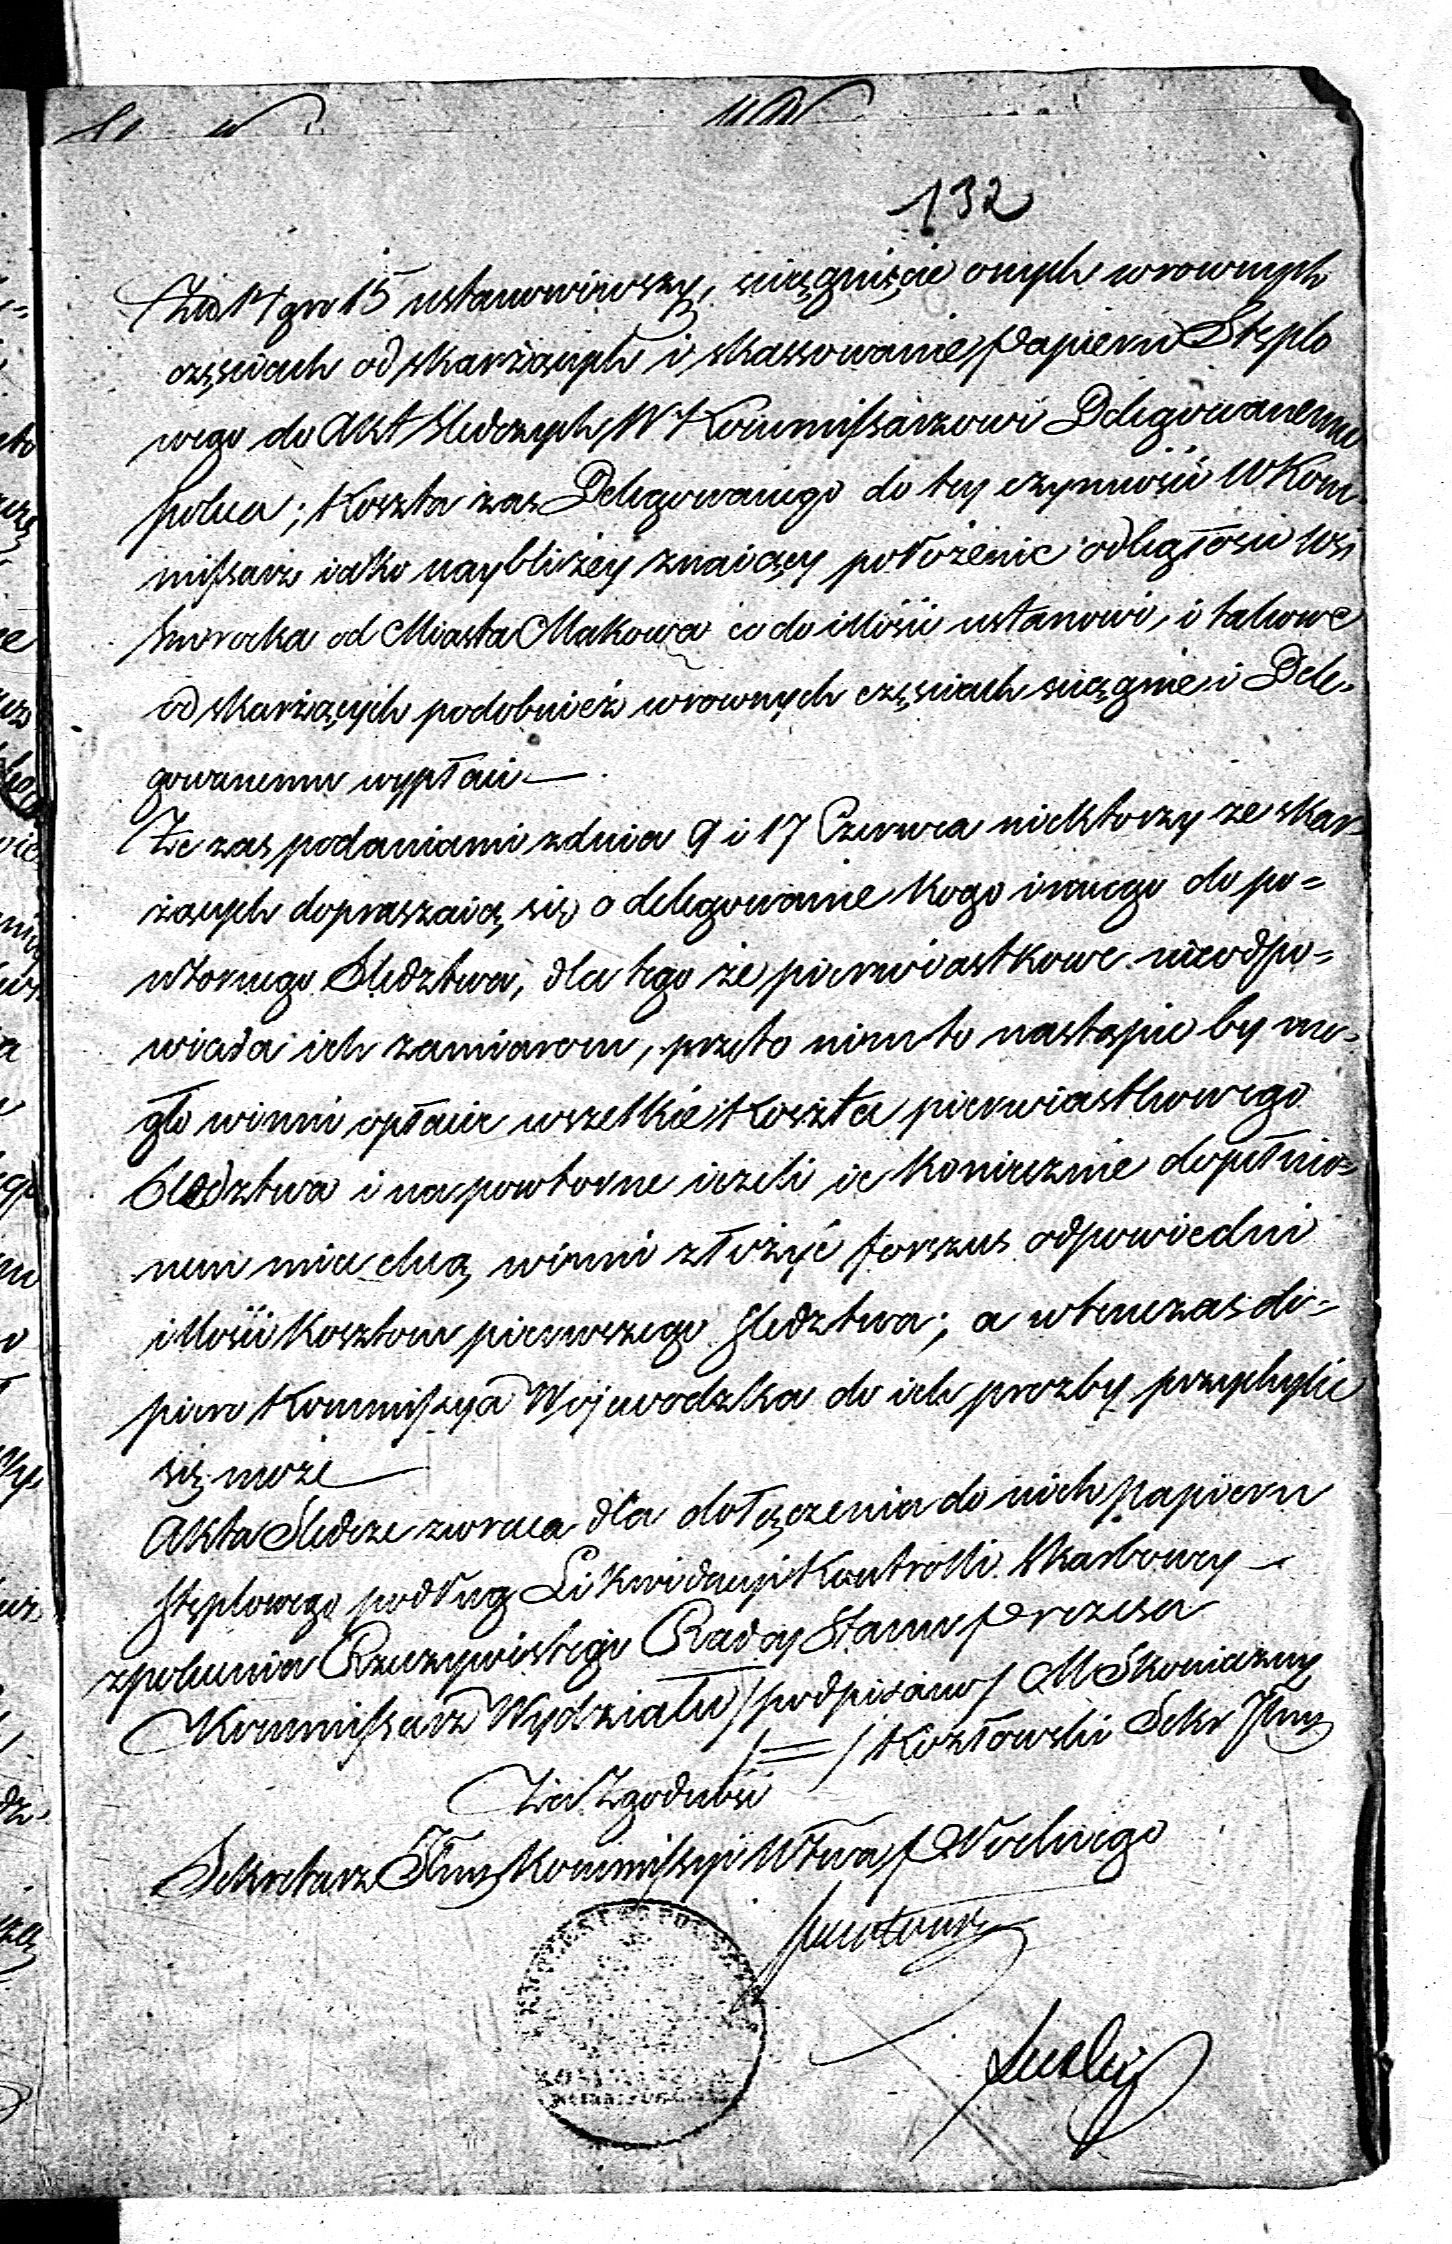 132
gr 15 ustanowiwszy, sciągnięcie onych w rownych
częściach od skarżących i skassowanie Papieru Stęplo
wego do Akt Sledczych W Kommissarzowi Delegowanemu
poleca; Koszta zas Delegowanego do tey czynności W Kom-
missarz iako naybliżey znaiący położenie odległości Wsi
od Miasta Makowa co do ilłości ustanowi, i takowe
od skarżących podobnież w rownych częściach sciągnie i Dele-
gowanemu wypłaci
Ze zas podaniami z dnia 9 i 17 Czerwca niektorzy ze skar-
żących dopraszaią się o delegowanie kogo innego do po=
wtornego Sledztwa, dla tego że pierwiastkowe nieodpo=
wiada ich zamiarom, przeto nim to nastąpic by mo-
gło winni opłacic wszelkie Koszta pierwiastkowego
Sledztwa i na powtorne ieżeli ie koniecznie dopełnio=
nem miec chcą winni złożyć forszus odpowiedni
illości Kosztom pierwszego Sledztwa; a wtenczas do=
piero Kommissya Wojewodzka do ich prozby przychylic
się może
Akta Sledcze zwraca dla dołączenia do nich Papieru
Stęplowego podług Likwidacyi Kontrolli Skarbowey
z polecenia Rzeczywistego Radcy Stanu Prezesa
Kommissarz Wydziału /podpisano/ M Skonieczny
/=/ Kozłowski Sekr Jlny
Za Zgodność
Sekretarz Jlny Kommissyi Wtwa Płockiego